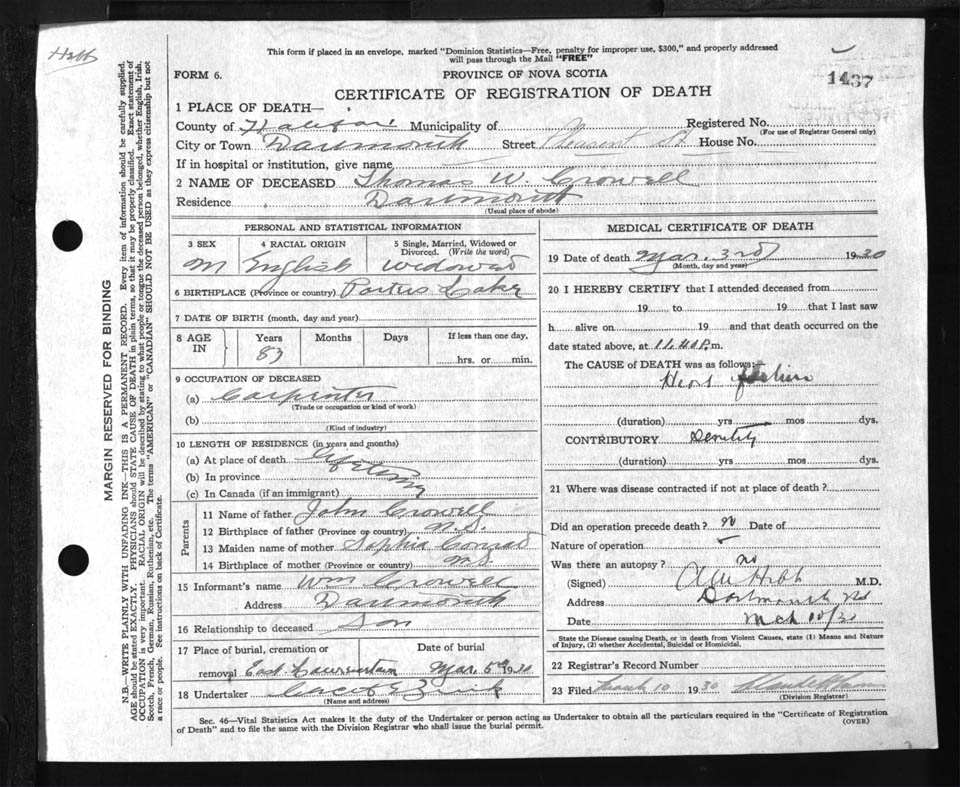 Hebb
This form if placed in an envelope, marked "Dominion Statistics—Free, penalty for improper use, $300," and properly addressed
will pass through the Mail "FREE"
FORM 6.
PROVINCE OF NOVA SCOTIA
1437
CERTIFICATE OF REGISTRATION OF DEATH
1 PLACE OF DEATH—
County of Halifax Municipality of Registered No.
(For use of Registrar General only)
City or Town Dartmouth Street Pleasent St House No.
If in hospital or institution, give name
2 NAME OF DECEASED Thomas W. Crowell
Residence Dartmouth
(Usual place of abode)
PERSONAL AND STATISTICAL INFORMATION
3 SEX 4 RACIAL ORIGIN 5 Single, Married, Widowed or Divorced. (Write the word)
M English Widowed
6 BIRTHPLACE (Province or country) Porters Lake
7 DATE OF BIRTH (month, day and year)
8 AGE IN Years Months Days If less than one day,
83 hrs. or min.
9 OCCUPATION OF DECEASED
(a) Carpenter
(Trade or occupation or kind of work)
(b)
(Kind of industry)
10 LENGTH OF RESIDENCE (in years and months)
(a) At place of death Lifetime
(b) In province
(c) In Canada (if an immigrant)
Parents
11 Name of father John Crowell
12 Birthplace of father (Province or country) N.S.
13 Maiden name of mother Sophia Conrad
14 Birthplace of mother (Province or country) N.S.
15 Informant's name Wm Crowell
Address Dartmouth
16 Relationship to deceased Son
17 Place of burial, cremation or Date of burial
removal East Lawrencetown Mar. 5th 1930
18 Undertaker
(Name and address)
MEDICAL CERTIFICATE OF DEATH
19 Date of death Mar. 3rd 1930
(Month, day and year)
20 I HEREBY CERTIFY that I attended deceased from
19 to 19 that I last saw
h alive on 19 and that death occurred on
date stated above, at 11.40 P.m.
The CAUSE OF DEATH was as follows:—
Heart failure
(duration) yrs mos dys.
CONTRIBUTORY Senility
(duration) yrs mos dys.
21 Where was disease contracted if not at place of death?
Did an operation precede death? no Date of
Nature of operation
Was there an autopsy? no
(Signed) Hebb M.D.
Address Dartmouth NS
Date Mch 10/30
State the Disease causing Death, or in death from Violent Causes, state (1) Means and Nature
of Injury, (2) whether Accidental, Suicidal or Homicidal.
22 Registrar's Record Number
23 Filed March 10 1930
(Division Registrar)
Sec. 46—Vital Statistics Act makes it the duty of the Undertaker or person acting as Undertaker to obtain all the particulars required in the "Certificate of Registration
of Death" and to file the same with the Division Registrar who shall issue the burial permit.
(OVER)
MARGIN RESERVED FOR BINDING
N.B.—WRITE PLAINLY WITH UNFADING INK—THIS IS A PERMANENT RECORD. Every item of information should be carefully supplied.
AGE should be stated EXACTLY. PHYSICIANS should STATE CAUSE OF DEATH in plain terms, so that it may be properly classified. Exact statement of
OCCUPATION is very important. RACIAL ORIGIN will be described by stating to what people or tongue the deceased person belonged, whether English, Irish,
Scotch, French, German, Russian, Ruthenian, etc. The terms "AMERICAN" or "CANADIAN" SHOULD NOT BE USED as they express citizenship but not
a race or people. See instructions on back of Certificate.